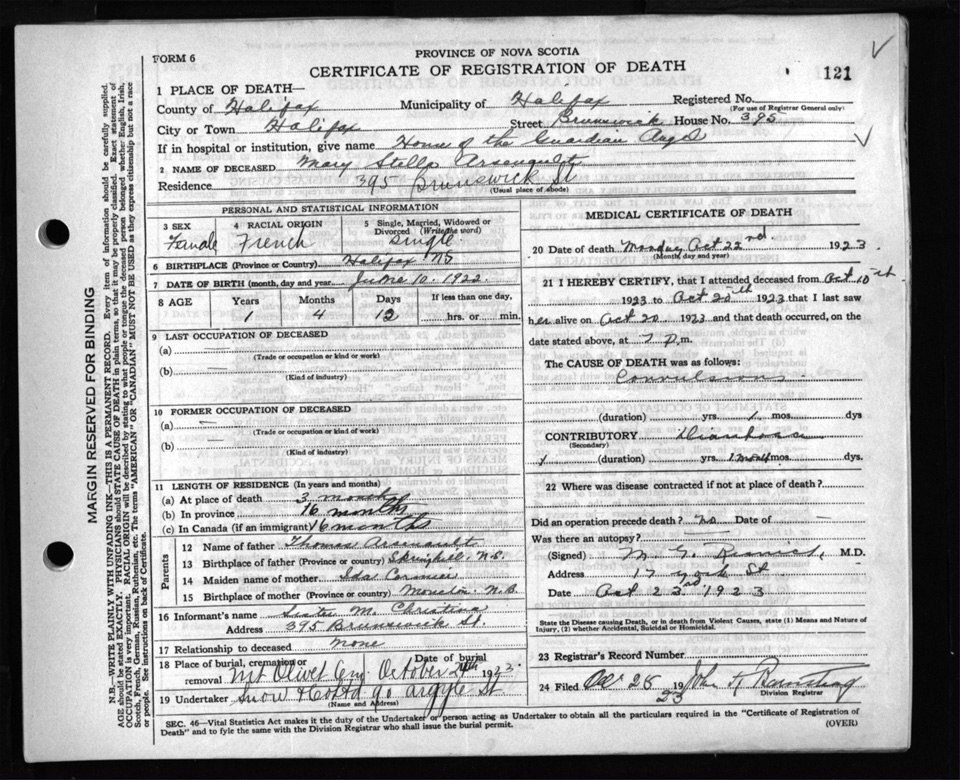 PROVINCE OF NOVA SCOTIA
FORM 6
CERTIFICATE OF REGISTRATION OF DEATH
121
1 PLACE OF DEATH—
County of Halifax Municipality of Halifax Registered No.
(For use of Registrar General only)
City or Town Halifax Street Brunswick House No. 395
If in hospital or institution, give name Home of the Guardian Angel
2 NAME OF DECEASED Mary Stella Arsenault
Residence 395 Brunswick St
(Usual place of abode)
PERSONAL AND STATISTICAL INFORMATION
3 SEX Female
4 RACIAL ORIGIN French
5 Single, Married, Widowed or Divorced (Write the word) Single
6 BIRTHPLACE (Province or Country) Halifax NS
7 DATE OF BIRTH (month, day and year June 10 1922
8 AGE Years Months Days If less than one day,
1 4 12 hrs. or min.
9 LAST OCCUPATION OF DECEASED
(a) —
(Trade or occupation or kind or work)
(b) —
(Kind of industry)
10 FORMER OCCUPATION OF DECEASED
(a) —
(Trade or occupation or kind of work)
(b) —
(Kind of industry)
11 LENGTH OF RESIDENCE (In years and months)
(a) At place of death 3 months
(b) In province 16 months
(c) In Canada (if an immigrant) 16 months
Parents
12 Name of father Thomas Arsenault
13 Birthplace of father (Province or Country) Springhill N.S.
14 Maiden name of mother Ida Cormier
15 Birthplace of mother (Province or Country) Moncton N.B.
16 Informant's name Sister M. Christina
Address 395 Brunswick St.
17 Relationship to deceased None
18 Place of burial, cremation or removal Mt Olivet Cem Date of burial October 24th 1923.
19 Undertaker Snow & Co Ltd 90 Argyle St
(Name and Address)
MEDICAL CERTIFICATE OF DEATH
20 Date of death Monday Oct 22nd 1923
(Month, day and year)
21 I HEREBY CERTIFY, that I attended deceased from Oct 10th
1923 to Oct 20th 1923 that I last saw
her alive on Oct 20 1923 and that death occurred, on the
date stated above, at 7 p.m.
The CAUSE OF DEATH was as follows:
Convulsions
(duration) yrs. mos. dys
CONTRIBUTORY Diarrhoea
(Secondary)
(duration) yrs. 1 month mos. dys.
22 Where was disease contracted if not at place of death?
Did an operation precede death? no Date of —
Was there an autopsy?
(Signed) M.D.
Address 17 York St
Date Oct 23rd 1923
State the Disease Causing Death, or in death from Violent Causes, state (1) Means and Nature of
Injury, (2) whether Accidental, Suicidal or Homicidal.
23 Registrar's Record Number
24 Filed Oct 25 1923 John
Division Registrar
SEC. 46—Vital Statistics Act makes it the duty of the Undertaker or person acting as Undertaker to obtain all the particulars required in the "Certificate of Registration of
Death" and to fyle the same with the Division Registrar who shall issue the burial permit.
(OVER)
MARGIN RESERVED FOR BINDING
N.B.—WRITE PLAINLY WITH UNFADING INK—THIS IS A PERMANENT RECORD. Every item of information should be carefully supplied.
AGE should be stated EXACTLY. PHYSICIANS should STATE CAUSE OF DEATH in plain terms, so that it may be properly classified. Exact statement of
OCCUPATION is very important. RACIAL ORIGIN will be described by stating to what people or tongue the deceased person belonged whether English, Irish,
Scotch, French, German, Russian, Ruthenian, etc. The terms "AMERICAN" or "CANADIAN" MUST NOT BE USED as they express citizenship but not a race
or people. See instructions on back of Certificate.